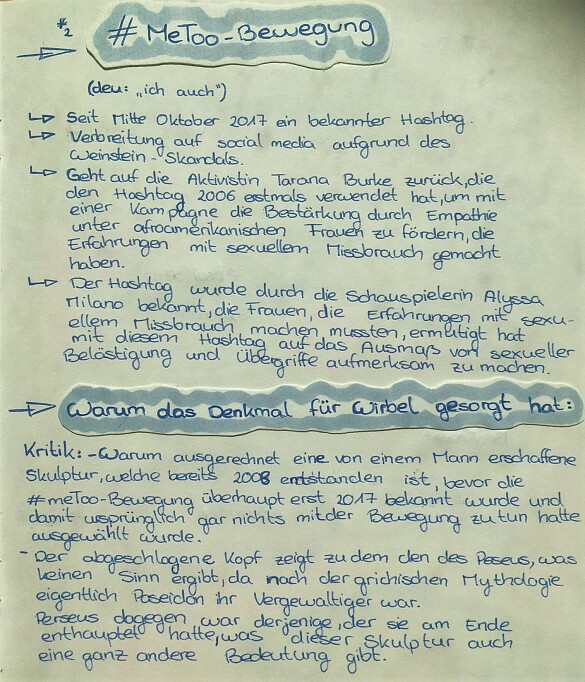 *2
# MeToo-Bewegung
(deu: „ich auch")
↳ Seit Mitte Oktober 2017 ein bekannter Hashtag.
↳ Verbreitung auf social media aufgrund des
Weinstein-Skandals.
↳ Geht auf die Aktivistin Tarana Burke zurück, die
den Hashtag 2006 erstmals verwendet hat, um mit
einer Kampagne die Bestärkung durch Empathie
unter afroamerikanischen Frauen zu fördern, die
Erfahrungen mit sexuellem Missbrauch gemacht
haben.
↳ Der Hashtag wurde durch die Schauspielerin Alyssa
Milano bekannt, die Frauen, die Erfahrungen mit sexu-
ellem Missbrauch machen mussten, ermutigt hat
mit diesem Hashtag auf das Ausmaß von sexueller
Belästigung und Übergriffe aufmerksam zu machen.
Warum das Denkmal für Wirbel gesorgt hat:
Kritik: - Warum ausgerechnet eine von einem Mann erschaffene
Skulptur, welche bereits 2008 entstanden ist, bevor die
#meToo-Bewegung überhaupt erst 2017 bekannt wurde und
damit ursprünglich gar nichts mit der Bewegung zu tun hatte
ausgewählt wurde.
- Der abgeschlagene Kopf zeigt zu dem den des Peseus, was
keinen Sinn ergibt, da nach der grichischen Mythologie
eigentlich Poseidon ihr Vergewaltiger war.
Perseus dagegen war derjenige, der sie am Ende
enthauptet hatte, was dieser Skulptur auch
eine ganz andere Bedeutung gibt.